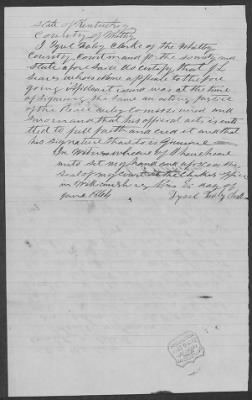 State of Kentucky
County of Whitley
I Tysel Early Clerk of the Whitley
County court and for the County and
State aforesaid do certify that J H
whose name appears to the fore
going affidavit is and was at the time
of signing the same an acting justice
of the Peace duly commissioned and
sworn and that his official acts is enti
tled to full faith and credit and that
his signature thereto is Genuine
In witness whereof I have here
unto set my hand and affixed the
seal of my court at the Clerks office
in Williamsburg this day of
June 18
Tysel Early Clerk